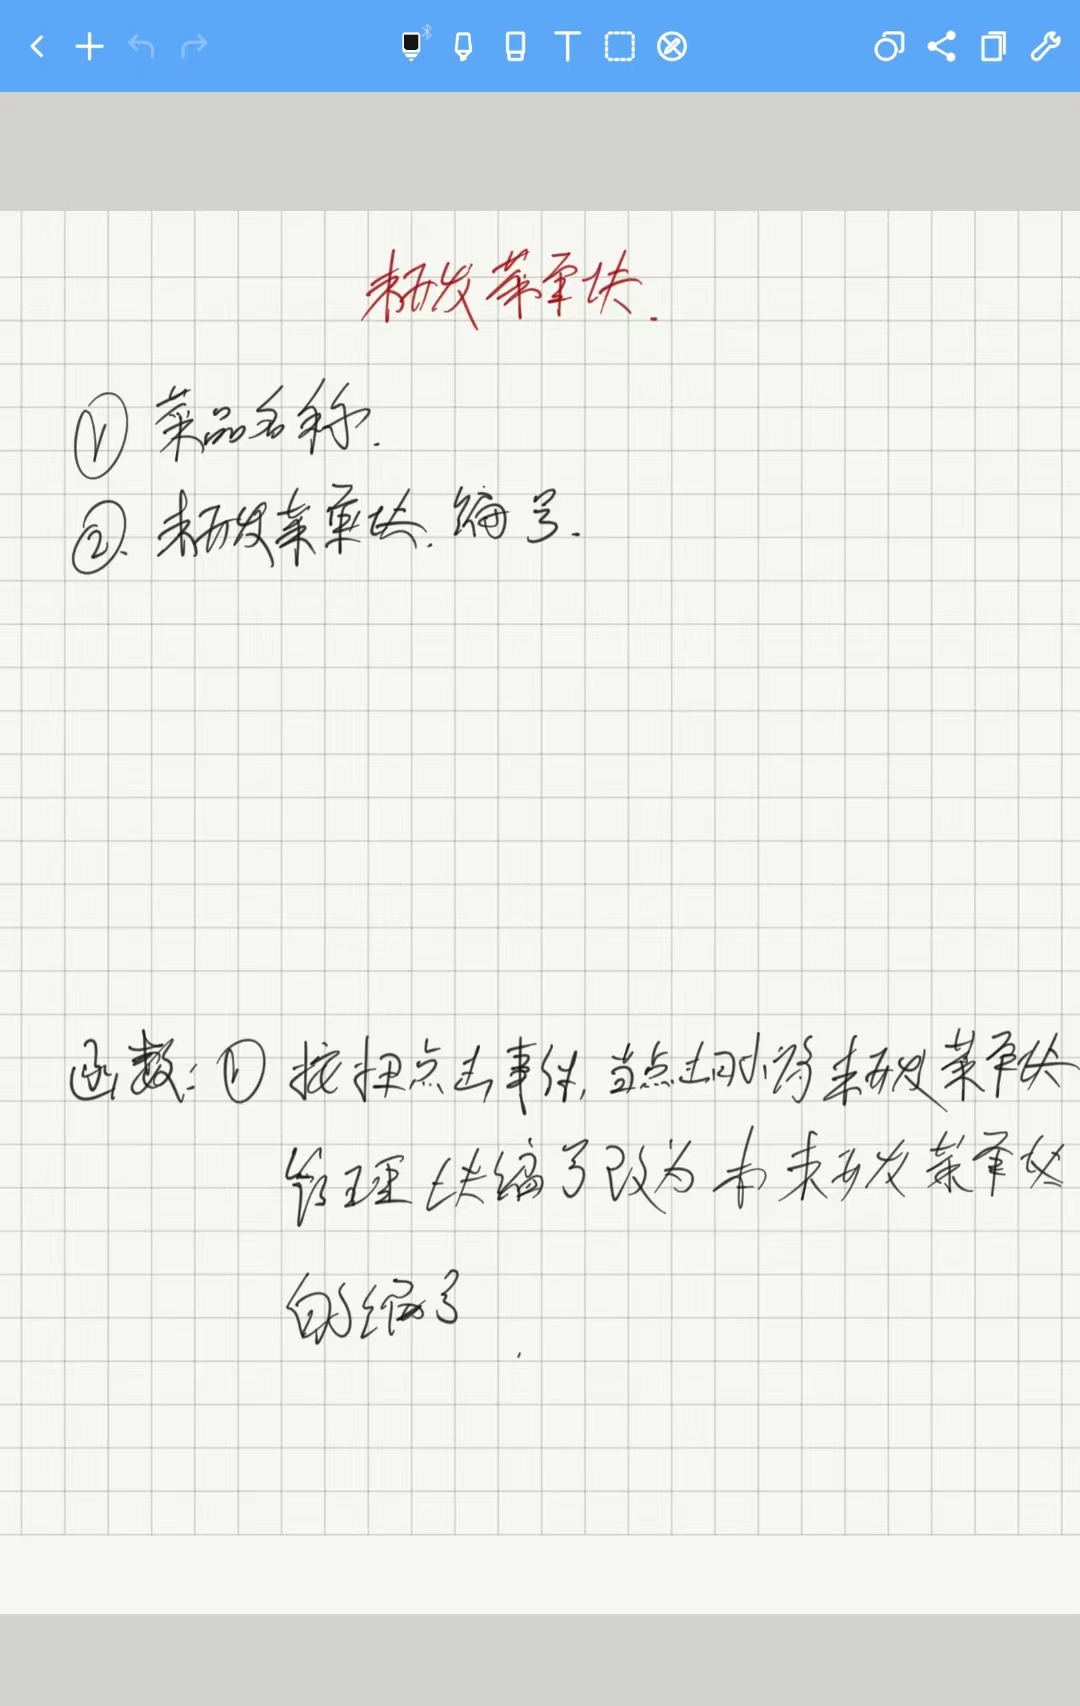 未研发菜单块.
① 菜品名称.
②. 未研发菜单块. 编号.
函数: ① 按扭点击事件, 当点击时,将未研发菜单块
管理块编号改为本未研发菜单块
的编号